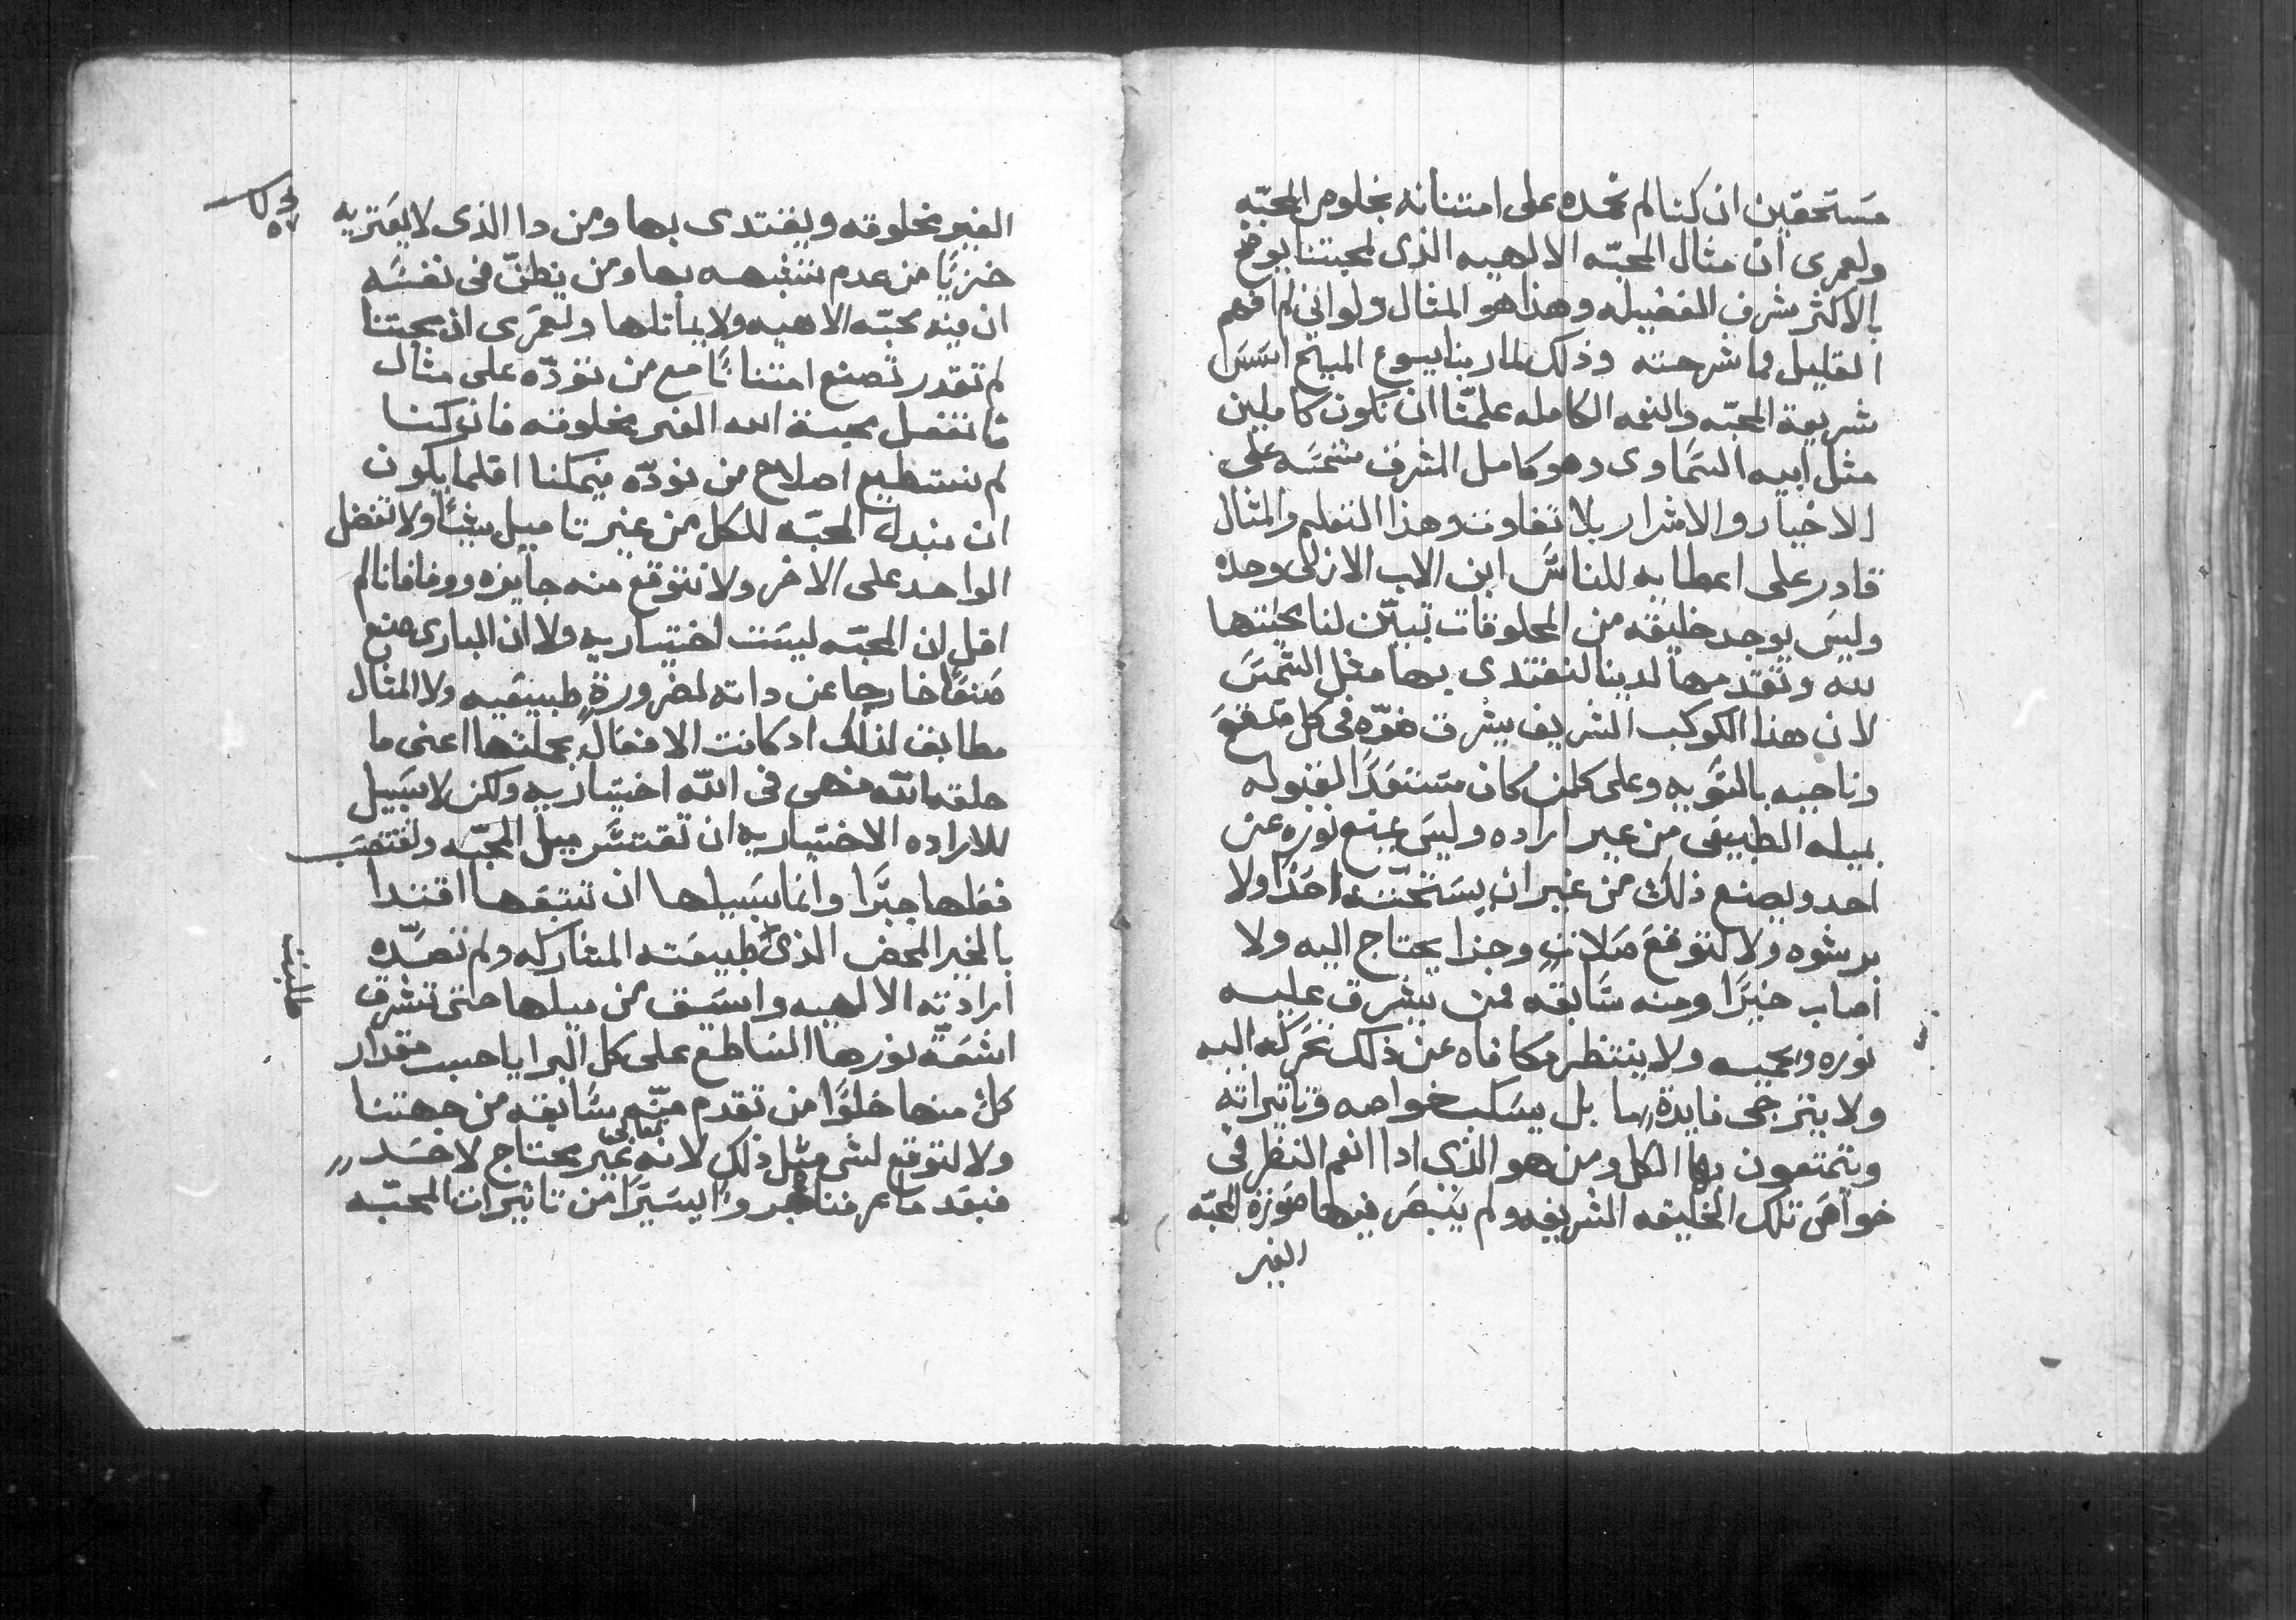 مستحقين ان كنا لم نحده على امتنانه بخلوص المحبه
ولعمرى ان مثال المحبه الالهيه الذى لمحبتنا يوضح
بالاكثر شرف الفضيله وهذا هو المثال ولو انى لم افهم
القليل مما شرحته وذلك لما ربنا يسوع المسيح اسس
شريعة المحبه والنعمه الكامله علمنا ان نكون كاملين
مثل ابيه السماوى وهو كامل المشرق شمسه على
الاخيار والاشرار بلا تفاوت وهذا التعليم والمثال
قادر على اعطايه للناس ابن الاب الازلى وحده
وليس يوجد خليقه من المخلوقات تبين لنا محبتها
لله وتقدمها لدينا لنقتدى بها مثل الشمس
لان هذا الكوكب الشريف يشرق ضوه فى كل صقع
وناحيه بالسويه وعلى كلمن كان مستعدا لقبوله
بميله الطبيعى من غير اراده وليس يمنع نوره عن
احد ويصنع ذلك من غير ان يستحثه احدا ولا
برشوه ولا لتوقع صلات وجزا يحتاج اليه ولا
اصاب خيرا ومنه سابقه ممن يشرق عليه
نوره ويحميه ولا ينتظر مكافاه عن ذلك تحركه اليه
ولا يترجى فايدة ما بل يسكب خواصه وتاثيراته
ويتمتعون بها الكل ومن هو الذى اذا انعم النظر فى
خواص تلك الخليقه الشريفه ولم يبصر فيها صورة المحبه
الغير
الغير مخلوقه ويقتدى بها ومن دا الذى لا يعتريه
خزيا من عدم تشبهه بها ومن يظن فى نفسه
ان فيه محبه الاهيه ولا يماثلها ولعمرى ان محبتنا
لم تقدر تصنع امتنانا مع من نوده على مثال
ما تفعل محبة الله الغير مخلوقه فان كنا
لم نستطيع اصلاح من نوده فيمكنا اقلما يكون
ان نبدل المحبه للكل من غير تاميل شيئا ولا نفضل
الواحد على الاخر ولا نتوقع منه جايزه ووفا فانا لم
اقل ان المحبه ليست اختياريه ولا ان البارى صنع
صنعا خارجا عن داته لضرورة طبيعيه ولا المثال
مطابق لذلك اد كانت الافعال بجملتها اعنى ما
خلقه الله فهى فى الله اختياريه ولكن لا سبيل
للاراده الاختياريه ان تقتسر ميل المحبه ولتغتصب
فعلها جبرا وانما سبيلها ان تتبعها اقتدا
بالخير المحض الذى طبيعته المتحاركه ولم تصده
ارادته الالهيه واسبق من ميلها حتى تشرق
اشعة نورها الساطع على كل البرايا حسب مقدار
كل منها خلوا من تقدم منه سابقه من جهتنا
ولا لتوقع لشى مثل ذلك لانه تعالى غير محتاج لاحد
فبعد ما عرفنا يسيرا من تاثيرات المحبه